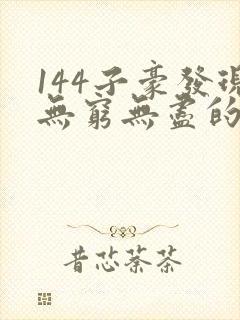 144子豪發現
無窮無盡的
昔恣蔡茶